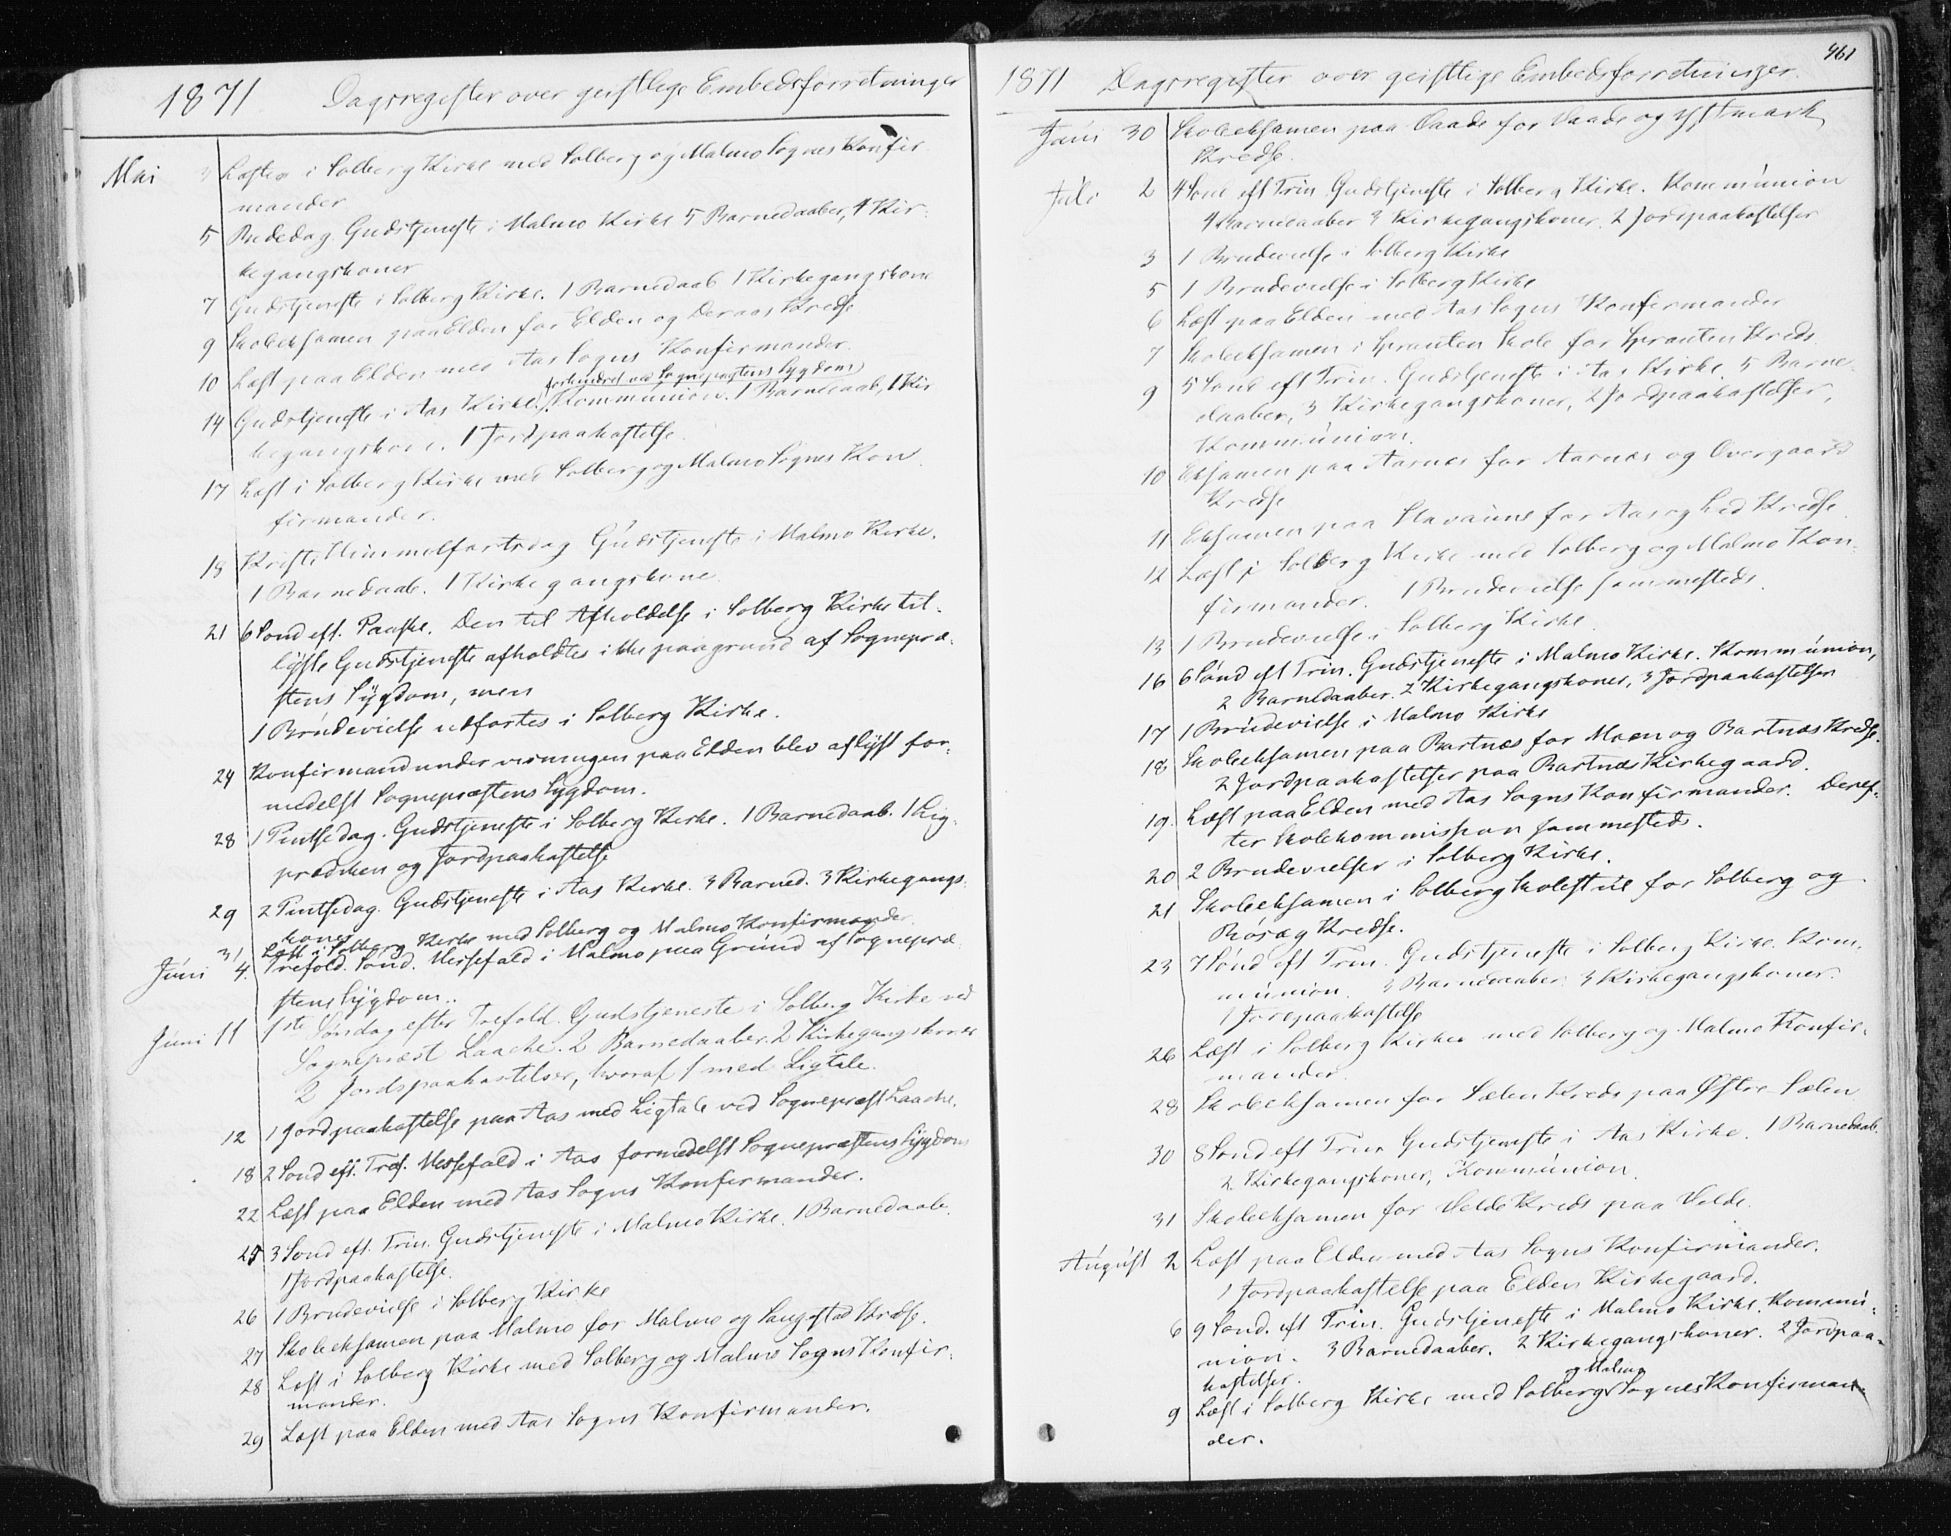 1871 Dagsregister over geistlige Embedsforretninger
Mai 3 Læst i Solberg Kirke med Solberg og Malmo Sognes Konfir-
mander
5 Bededag Gudstjeneste i Malmo Kirke 5 Barnedaaber, 4 Kir-
kegangskoner
7 Gudstjeneste i Solberg Kirke. 1 Barnedaab 1 Kirkegangskone
9 Skoleeksamen paa Elden for Elden og Deraas Kredse
10 Læst paa Elden med Aas Sogns Konfirmander.
forhindret ved Sognepræstens Sygdom
14 Gudstjeneste i Aas Kirke. Kommúnion. 1 Barnedaab, 1 Kir-
kegangskone. 1 Jordpaakastelse.
17 Læst i Solberg Kirke med Solberg og Malmo Sognes Kon-
firmander.
18 Kristi Himmelfartsdag Gúdstjeneste i Malmo Kirke.
1 Barnedaab. 1 Kirkegangskone
21 6 Sond eft. Paaske. Den til Afholdelse i Solberg Kirke til-
lyste Gudstjeneste afholdtes ikke paagrund af Sognepræ-
stens Sygdom, men
1 Brúdevielse udfortes i Solberg Kirke.
24 Konfirmandundervisningen paa Elden blev aflyst for-
medelst Sognepræstens Sygdom.
28 1 Pintsedag. Gudstjeneste i Solberg Kirke. 1 Barnedaab. 1 Lig-
prædiken og Jordpaakastelse
29 2 Pintsedag. Gudstjeneste i Aas Kirke. 3 Barned. 3 Kirkegangs-
koner
31, Læst i Solberg Kirke med Solberg og Malmo Konfirmander.
Júni 4. Trefold. Sónd. Messefald i Malmo paa Grúnd af Sognepræ-
stens Sygdom..
Júni 11 1ste Søndag efter Trefold. Gudstjeneste i Solberg Kirke ved
Sognepræst Laache. 2 Barnedaaber. 2 Kirkegangskoner
2 Jordspaakastelser, hvoraf 1 med Ligtale.
12 1 Jordpaakastelse paa Aas med Ligtale ved Sognepræst Laache.
18 2 Sond eft. Tref. Messefald i Aas formedelst Sognepræstens Sygdom
22 Læst paa Elden med Aas Sogns Konfirmander.
25 3 Sond eft. Trin. Gudstjeneste i Malmo Kirke. 1 Barnedaab.
1 Jordpaakastelse.
26 1 Brudevielse i Solberg Kirke
27 Skoleeksamen paa Malmo for Malmo og Sangstad Kredse.
28 Læst i Solberg Kirke med Solberg og Malmo Sogns Konfir-
mander.
29 Læst paa Elden med Aas Sogns Konfirmander.
461
1871 Dagsregister over geistlige Embedsforretninger.
Júni 30 Skoleeksamen paa Vaade for Vaade og mark
Kredse.
Júli 2 4 Sond eft Trin Gudstjeneste i Solberg Kirke. Kommúnion
4 Barnedaaber 3 Kirkegangskoner. 2 Jordpaakastelser
3 1 Brudevielse i Solberg Kirke
5 1 Brudevielse i Solberg Kirke
6 Læst paa Elden med Aas Sogns Konfirmander
7 Skoleeksamen i Skole for Kreds
9 5 Sond eft Trin. Gudstjeneste i Aas Kirke. 5 Barne-
daaber, 3 Kirkegangskoner, 2 Jordpaakastelser,
Kommúnion.
10 Eksamen paa Aarnes for Aarnæs og Overgaard
Kredse
11 Eksamen paa for Aas og Kredse
12 Læst i Solberg Kirke med Solberg og Malmo Kon-
firmander. 1 Brudevielse sammesteds.
13 1 Brudevielse i Solberg Kirke.
16 6 Sónd eft Trin. Gudstjeneste i Malmo Kirke. Kommúnion,
2 Barnedaaber. 2 Kirkegangskoner, 3 Jordpaakastelser
17 1 Brúdevielse i Malmo Kirke
18 Skoleeksamen paa Bartnæs for Moen og Bartnæs Kredse.
2 Jordpaakastelser paa Bartnæs Kirkegaard.
19. Læst paa Elden med Aas Sogns Konfirmander. Deref-
ter Skolekommission sammesteds.
20 2 Brudevielser i Solberg Kirke.
21 Skoleeksamen i Solberg Skolestue for Solberg og
Kredse.
23 7 Sónd eft Trin. Gudstjeneste i Solberg Kirke. Kom-
múnion. 3 Barnedaaber 3 Kirkegangskoner.
1 Jordpaakastelse
26 Læst i Solberg Kirke med Solberg og Malmo Konfir-
mander
28 Skoleeksamen for Sælen Kreds paa Øster Sælen
30 8 Sond eft Trin Gudstjeneste i Aas Kirke. 1 Barnedaab
2 Kirkegangskoner, Kommúnion.
31 Skoleeksamen for Velde Kreds paa Velde.
Aúgúst 2 Læst paa Elden med Aas Sogns Konfirmander.
1 Jordpaakastelse paa Elden Kirkegaard.
6 9 Sond. eft Trin. Gudstjeneste i Malmo Kirke. Kommú-
nion. 3 Barnedaaber. 2 Kirkegangskoner. 2 Jordpaa-
kastelser.
og Malmo
9 Læst i Solberg Kirke med Solberg Sognes Konfirman-
der.